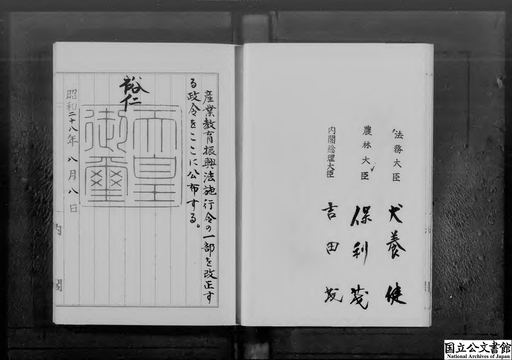 法務大臣 犬養健
農林大臣 保利茂
内閣総理大臣 吉田茂
産業教育振興法施行令の一部を改正す
る政令をここに公布する。
裕仁
天皇御璽
昭和二十八年八月八日
内閣
国立公文書館
National Archives of Japan